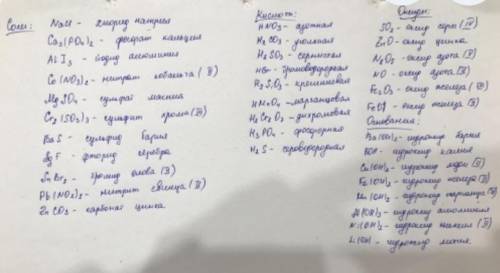 Соли:
NaCl - хлорид натрия
Ca3(PO4)2 - фосфат кальция
AlI3 - йодид алюминия
Co(NO3)2 - нитрат кобальта (II)
MgSO4 - сульфат магния
Cr2(SO3)3 - сульфит хрома (III)
BaS - сульфид бария
AgF - фторид серебра
SnBr2 - бромид олова (II)
Pb(NO2)2 - нитрит свинца (II)
ZnCO3 - карбонат цинка
Кислоты:
HNO3 - азотная
H2CO3 - угольная
H2SO3 - сернистая
HBr - бромоводородная
H2SiO3 - кремниевая
HMnO4 - марганцовая
H2Cr2O7 - дихромовая
H3PO4 - фосфорная
H2S - сероводородная
Оксиды:
SO2 - оксид серы (IV)
ZnO - оксид цинка
N2O5 - оксид азота (V)
NO - оксид азота (II)
Fe2O3 - оксид железа (III)
FeO - оксид железа (II)
Основания:
Ba(OH)2 - гидроксид бария
KOH - гидроксид калия
Cu(OH)2 - гидроксид меди (II)
Fe(OH)2 - гидроксид железа (II)
Mn(OH)2 - гидроксид марганца (II)
Al(OH)3 - гидроксид алюминия
Ni(OH)2 - гидроксид никеля (II)
Li(OH) - гидроксид лития